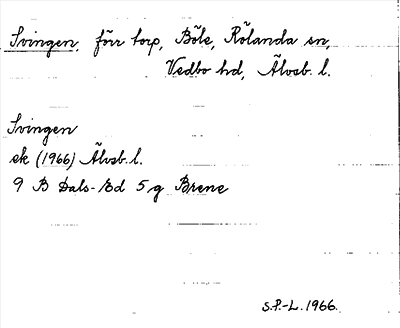 Svingen, förr torp, Böle, Rölanda sn,
Vedbo hd, Älvsb. l.
Svingen
ek (1966) Älvsb. l.
9 B Dals-Ed 5 g Brene
S.P.-L. 1966.